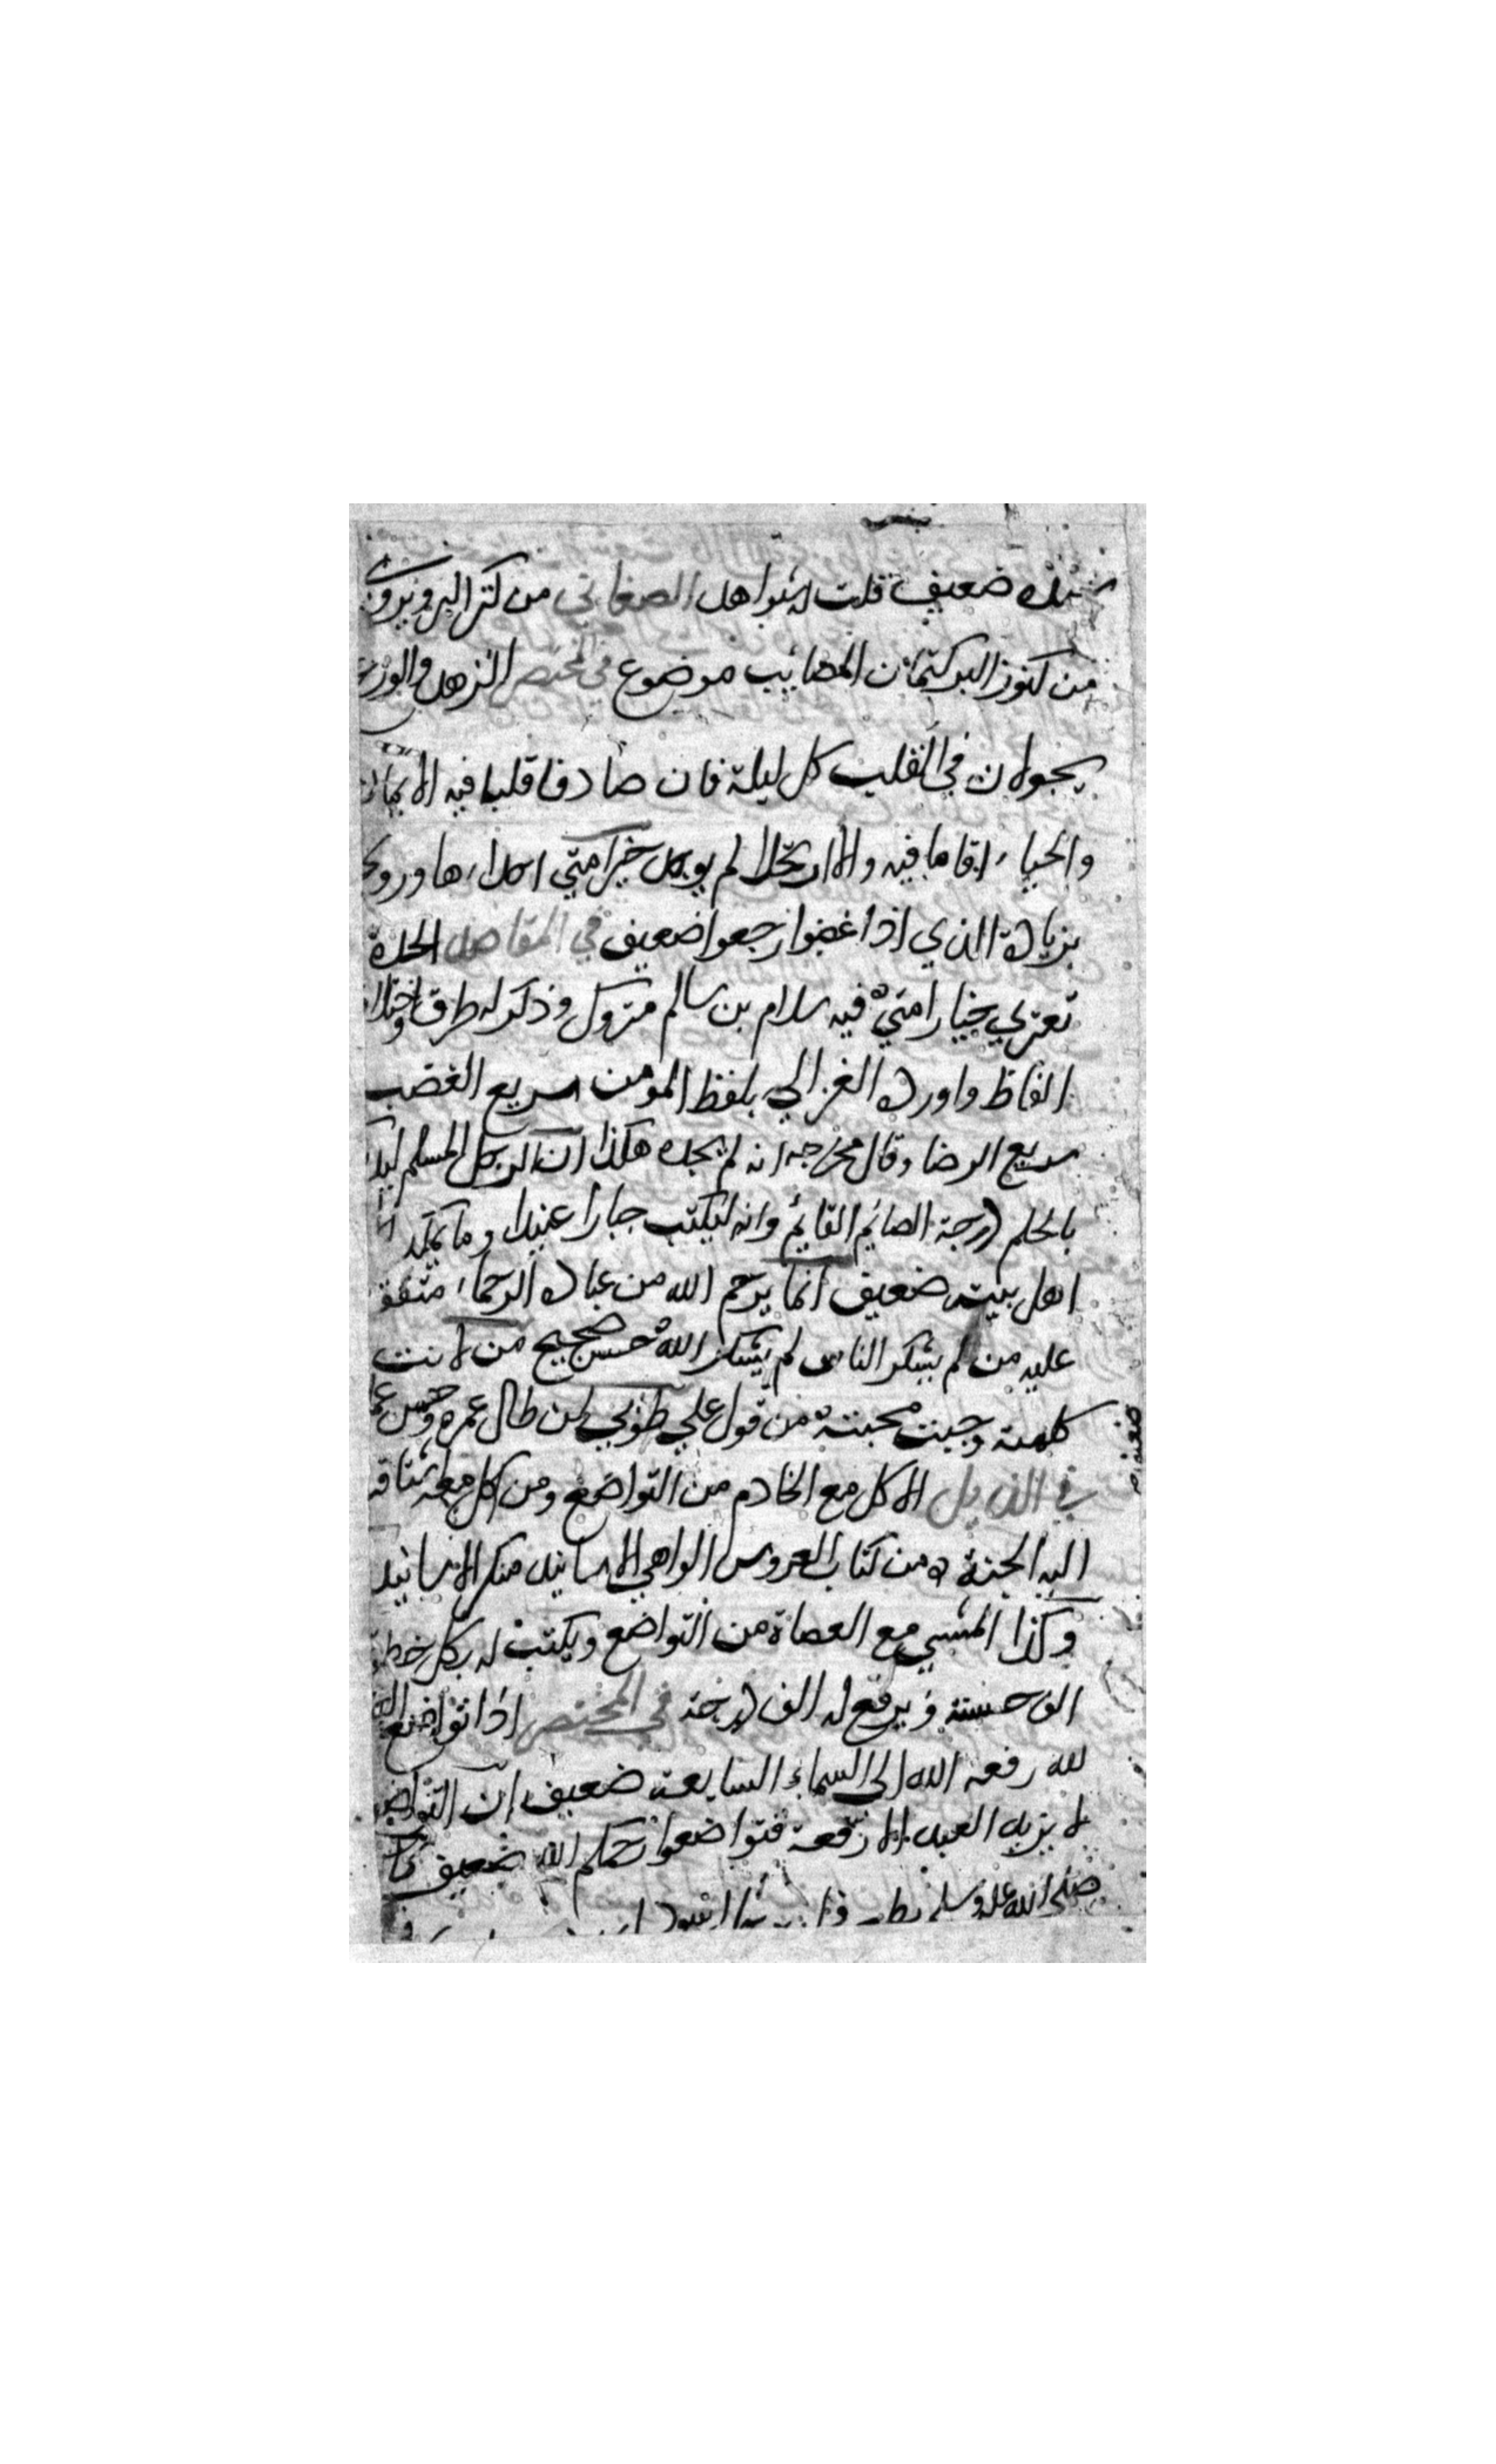 سنده ضعيف قلت له شواهد الصغاني من كنز البر ويروى
من كنوز البر كتمان المصايب موضوع في المختصر الزهد والورع
يجولان في القلب كل ليلة فان صادفا قلبا فيه الايمان
والحياء اقاما فيه والا ارتحلا لم يوجد خير امتي احداءها وروي
بزيادة الذي اذا غضبوا رجعوا ضعيف في المقاصد الحدة
تعتري خيار امتي فيه سلام بن سالم متروك وذكر له طرق واختلاف
الفاظ واورده الغزالي بلفظ المومن سريع الغضب
سريع الرضا وقال مخرجه انه لم يجده هكذا ان الرجل المسلم ليدرك
بالحلم درجة الصايم القايم وانه ليكتب جبارا عنيدا وما يملك الا
اهل بيته ضعيف انما يرحم الله من عباده الرحماء متفق
عليه من لم يشكر الناس لم يشكر الله حسن صحيح من لانت
كلمته وجبت محبته من قول علي طوبي لمن طال عمره وحسن عمله
ضعيف
في الذيل الاكل مع الخادم من التواضع ومن اكل معه اشتاقت
اليه الجنة من كتاب العروس الواهي الاسانيد منكر الاسانيد
وكذا المشي مع العصاة من التواضع ويكتب له بكل خطوة
الف حسنة ويرفع له الف درجة في المختصر اذا تواضع العبد
لله رفعه الله الى السماء السابعة ضعيف ان التواضع
لا يزيد العبد الا رفعة فتواضعوا رحمكم الله ضعيف كان
صلى الله عليه وسلم